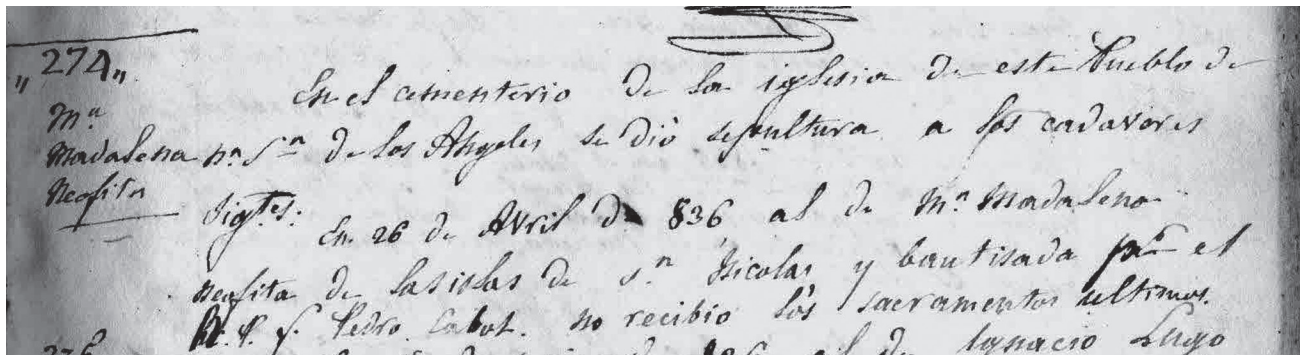 „274„
Mª
Madalena
Neofita
En el cementerio de la iglesia de este Pueblo de
nª Sª de los Angeles se dió sepultura a los cadavores
sigtes:
En 26 de Avril de 836 al de Mª Madalena
neofita de las islas de Sn Nicolas y bautisada por el
R. P. f. Pedro Cabot. no recibio los sacramentos ultimos.
276
836 al de Ignacio Lugo